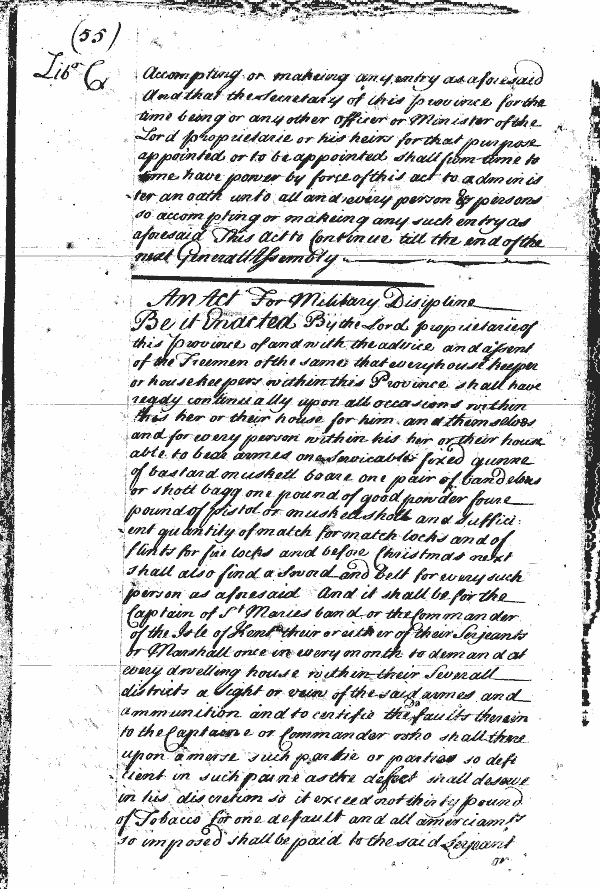 (55)
Libr C
Accompting or makeing any entry as aforesaid
And that the Secretary of this province for the
time being or any other officer or Minister of the
Lord proprietarie or his heirs for that purpose
appointed or to be appointed shall from time to
time have power by force of this act to adminis
ter an oath unto all and every person & persons
so accompting or makeing any such entry as
aforesaid This Act to Continue till the end of the
next Generall Assembly
An Act For Military Discipline
Be it Enacted By the Lord proprietarie of
this province of and with the advice and assent
of the Freemen of the same that every house keeper
or housekeepers within this Province shall have
ready continually upon all occasions within
his her or their house for him and themselves
and for every person within his her or their house
able to bear armes one Servicable fixed gunne
of bastard muskett boare one pair of bandeleers
or shott bagg one pound of good powder foure
pound of pistol or muskett shott and Suffici:
ent quantity of match for match locks and of
flints for fire locks and before Christmas next
shall also find a Sword and belt for every such
person as aforesaid And it shall be for the
Captain of St Maries band or the Commander
of the Isle of Kent their or either of their Serjeants
or Marshall once in every month to demand at
every dwelling house within their Severall
districts a sight or veiw of the said armes and
ammunition and to certifie the faults therein
to the Captaine or Commander who shall there
upon amerse such partie or parties so defi
cient in such paine as the defect shall deserve
in his discretion so it exceed not thirty pound
of Tobacco for one default and all amerciamts
so imposed shall be paid to the said Serjeant
or